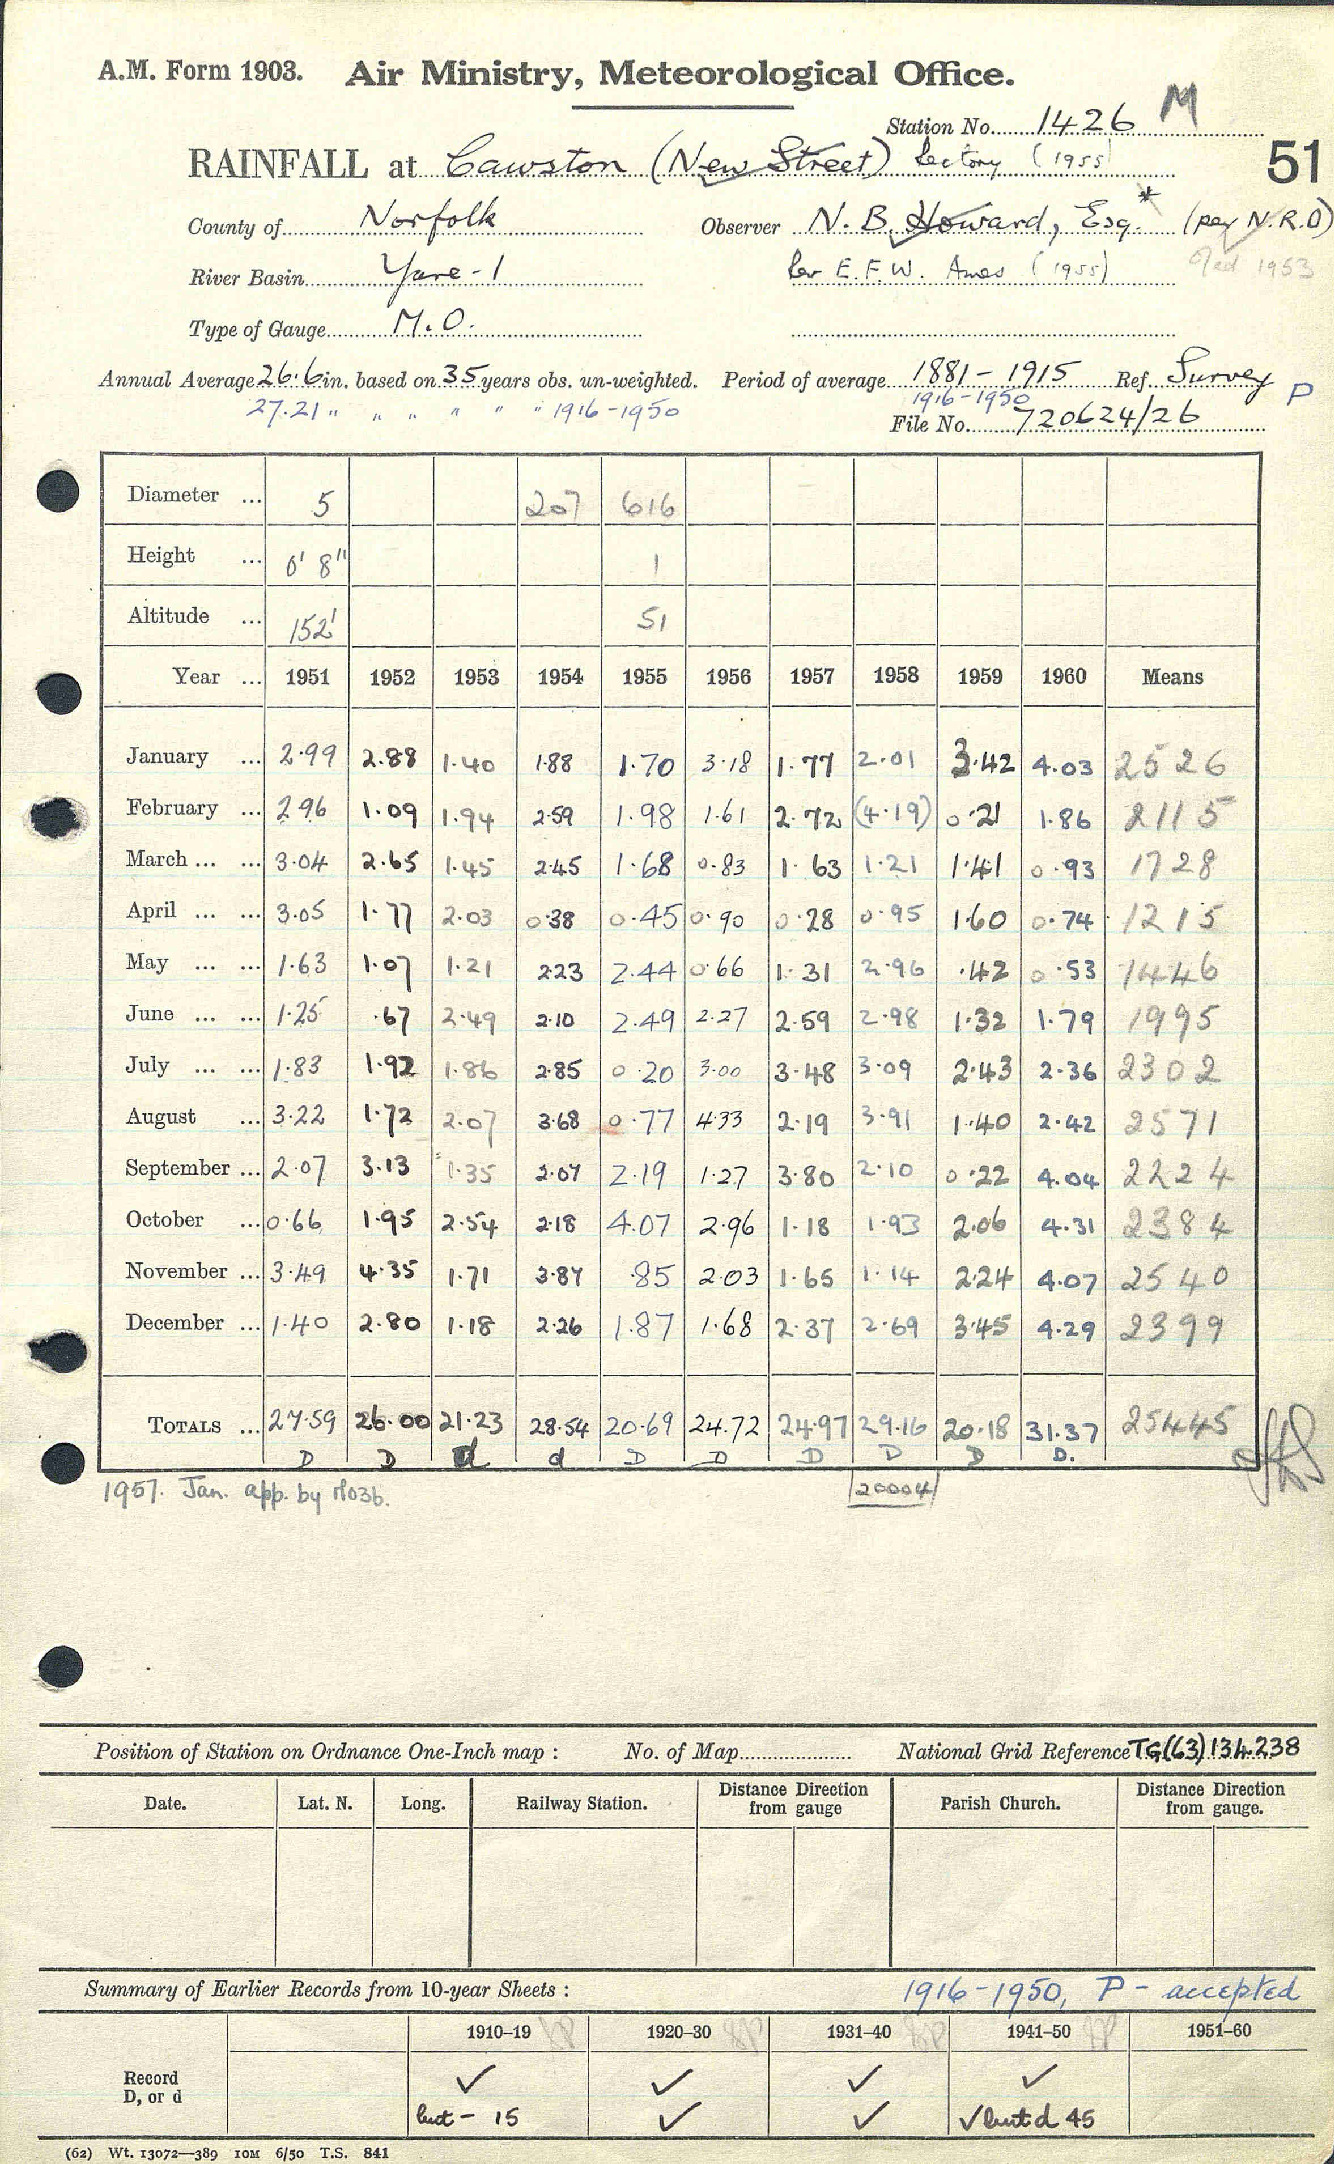 A.M. Form 1903. Air Ministry, Meteorological Office.
Station No. 1426 M
RAINFALL at Cawston (New Street) Rectory (1955) 51
County of Norfolk Observer N. B. Howard, Esq. * (per N.R.O)
River Basin Yare-1 Rev E.F.W. Ames (1955) 1953
Type of Gauge M.O.
Annual Average 26.6 in. based on 35 years obs. un-weighted. Period of average 1881-1915 Ref. Survey P
27.21 " " " " " " 1916-1950 1916-1950
File No. 720624/26
Diameter ... 5 207 616
Height ... 0' 8" 1
Altitude ... 152' 51
Year ... 1951 1952 1953 1954 1955 1956 1957 1958 1959 1960 Means
January ... 2.99 2.88 1.40 1.88 1.70 3.18 1.77 2.01 3.42 4.03 2526
February ... 2.96 1.09 1.94 2.59 1.98 1.61 2.72 (4.19) 0.21 1.86 2115
March ... ... 3.04 2.65 1.45 2.45 1.68 0.83 1.63 1.21 1.41 0.93 1728
April ... ... 3.05 1.77 2.03 0.38 0.45 0.90 0.28 0.95 1.60 0.74 1215
May ... ... 1.63 1.07 1.21 2.23 2.44 0.66 1.31 2.96 .42 0.53 1446
June ... ... 1.25 .67 2.49 2.10 2.49 2.27 2.59 2.98 1.32 1.79 1995
July ... ... 1.83 1.92 1.86 2.85 0.20 3.00 3.48 3.09 2.43 2.36 2302
August ... 3.22 1.72 2.07 3.68 0.77 4.33 2.19 3.91 1.40 2.42 2571
September ... 2.07 3.13 1.35 2.07 2.19 1.27 3.80 2.10 0.22 4.04 2224
October ... 0.66 1.95 2.54 2.18 4.07 2.96 1.18 1.93 2.06 4.31 2384
November ... 3.49 4.35 1.71 3.87 .85 2.03 1.65 1.14 2.24 4.07 2540
December ... 1.40 2.80 1.18 2.26 1.87 1.68 2.37 2.69 3.45 4.29 2399
TOTALS ... 27.59 26.00 21.23 28.54 20.69 24.72 24.97 29.16 20.18 31.37 25445
D D d d D D D D D D.
1957. Jan. app. by M03b. 20004
Position of Station on Ordnance One-Inch map : No. of Map National Grid Reference TG(63)134.238
Date. Lat. N. Long. Railway Station. Distance Direction from gauge Parish Church. Distance Direction from gauge.
Summary of Earlier Records from 10-year Sheets : 1916-1950, P - accepted
1910–19 1920–30 1931–40 1941–50 1951–60
Record ✓ ✓ ✓ ✓
D, or d but - 15 ✓ ✓ ✓ but d 45
(62) Wt. 13072—389 10M 6/50 T.S. 841